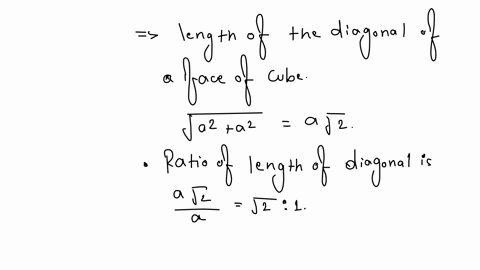 => length of the diagonal of
a face of cube.
√(a² + a²) = a√2.
• Ratio of length of diagonal is
a√2/a = √2 : 1.